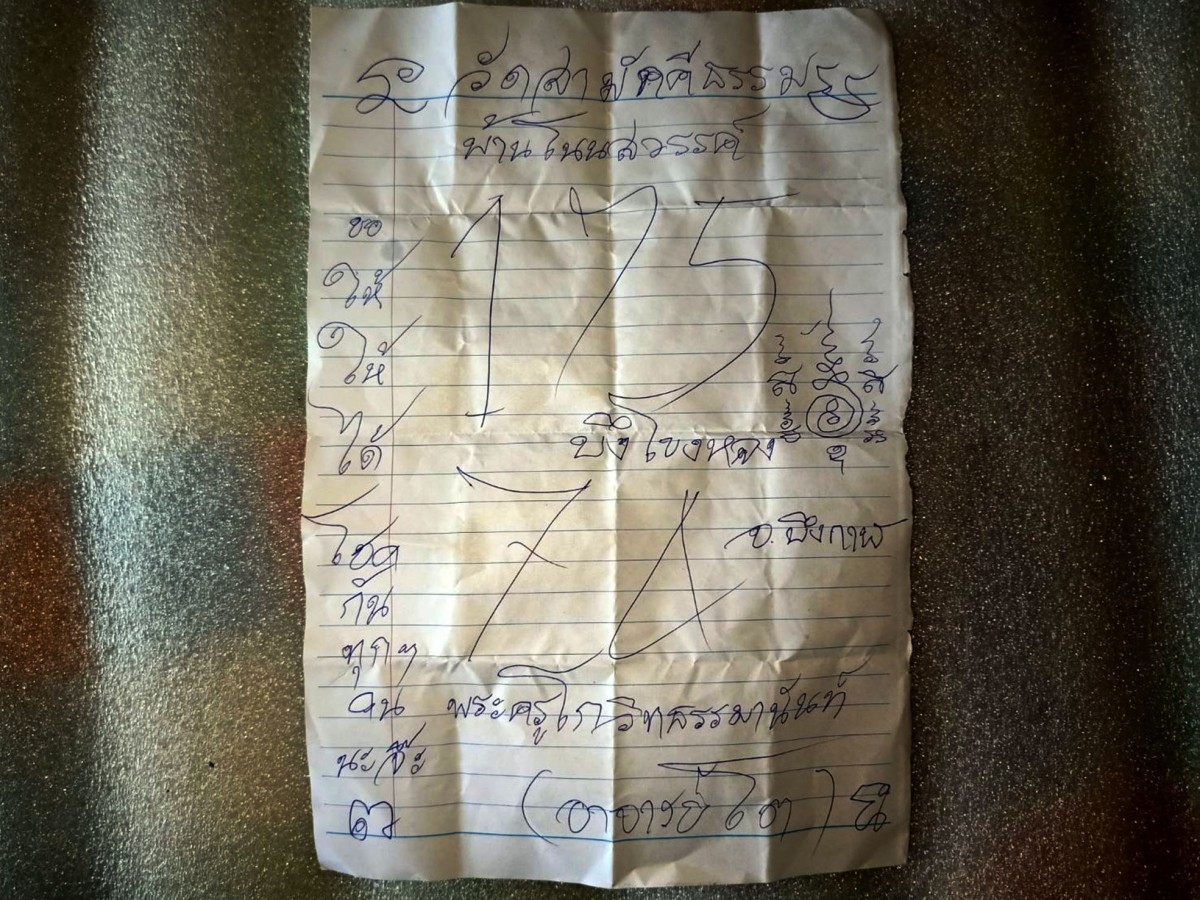 วัดสามัคคีธรรม
บ้านโนนสวรรค์
175
บึงโขงหลง
74
จ.บึงกาฬ
ขอ
ให้
ให้
ได้
โชค
กัน
ทุกๆ
คน
นะจ๊ะ
พระครูโกวิทธรรมานันท์
(อาจารย์โต)